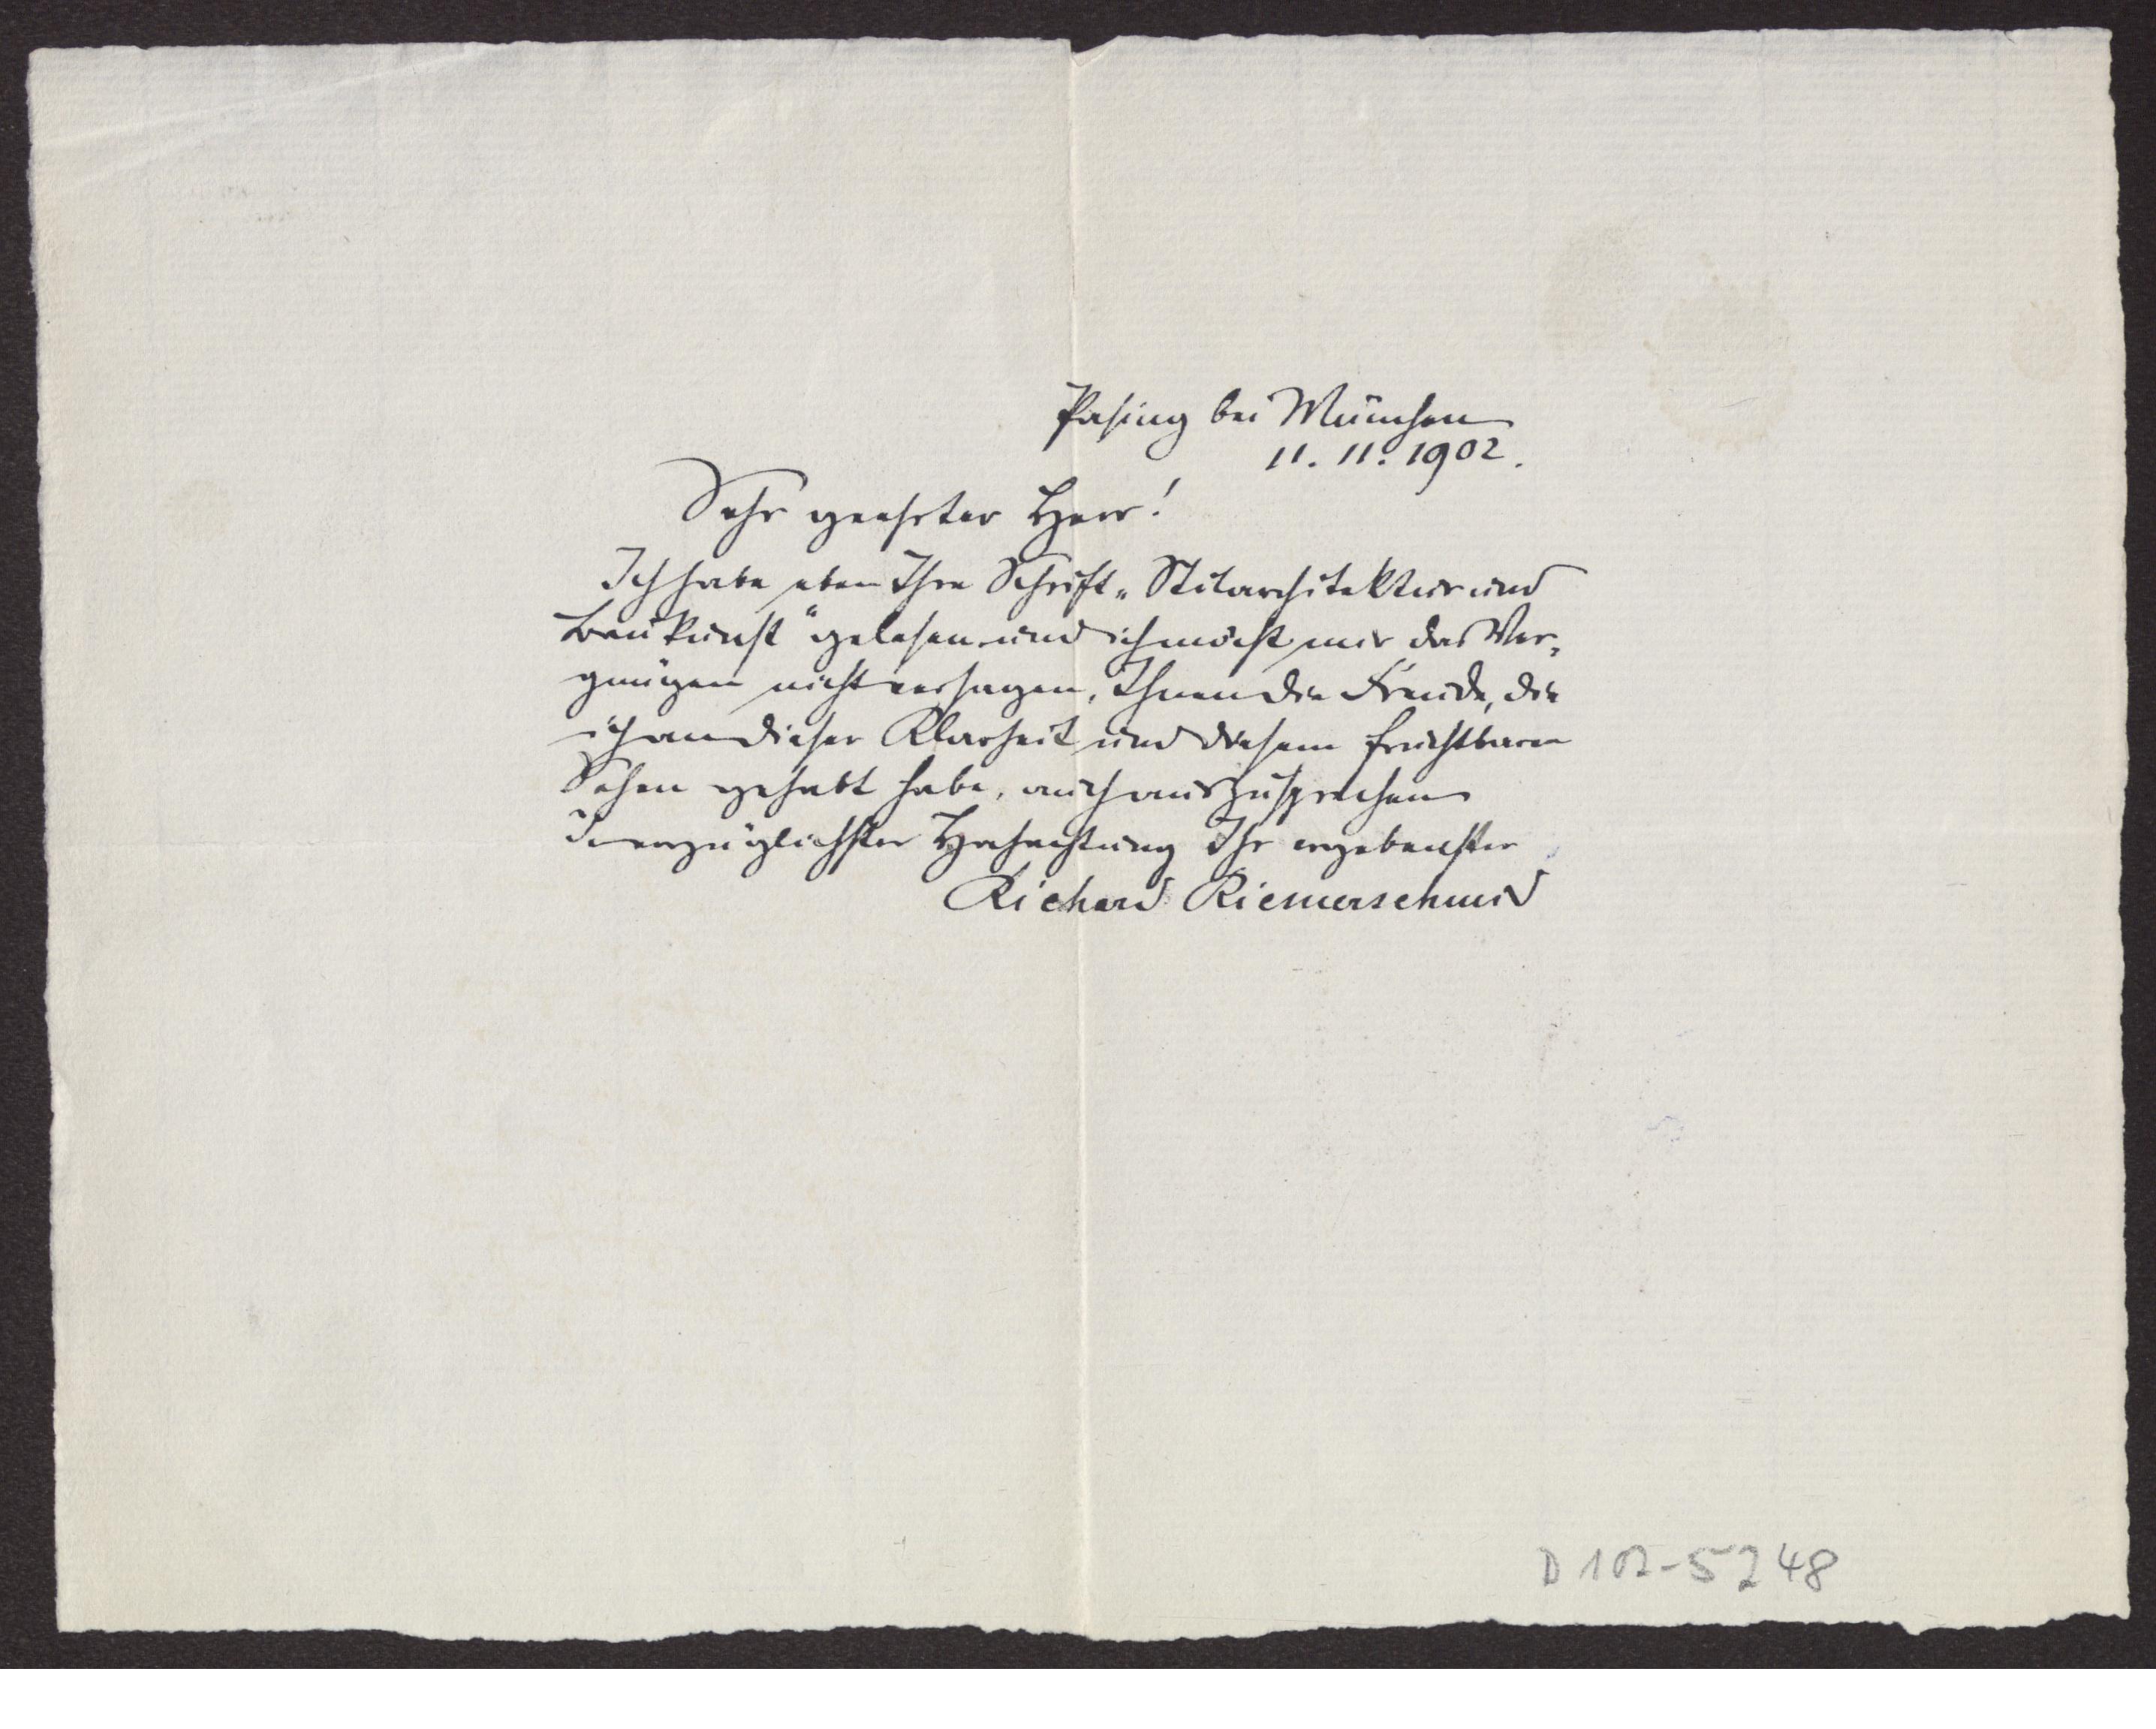 Pasing bei München
11. 11. 1902.
Sehr geehrter Herr!
Ich habe eben Ihre Schrift „Stilarchitektur und
Baukunst" gelesen und ich möcht mir das Ver-
gnügen nicht versagen, Ihnen die Freude, die
ich an dieser Klarheit und diesem fruchtbaren
Sehen gehabt habe, auch auszusprechen
In vorzüglichster Hochachtung Ihr ergebenster
Richard Riemerschmid
D 102-5248